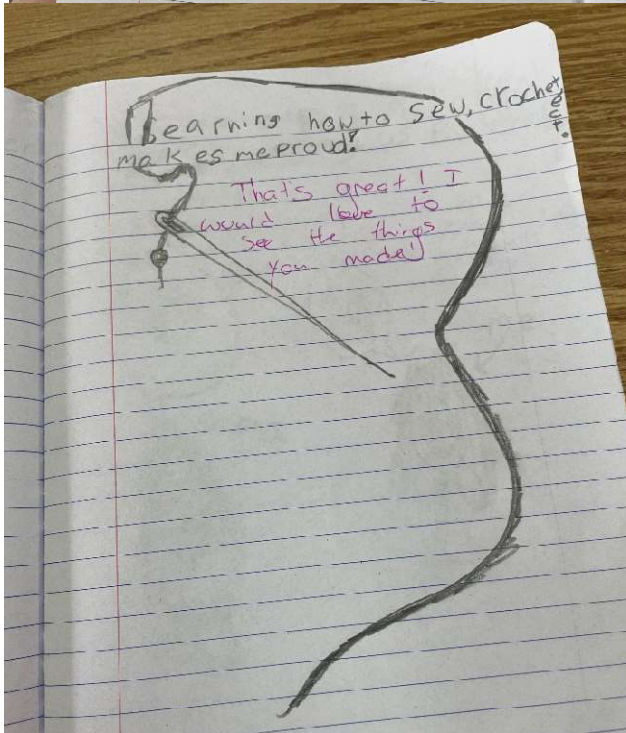 Learning how to sew, crochet, ect.
makes me proud!
That's great! I
would love to
see the things
you made!